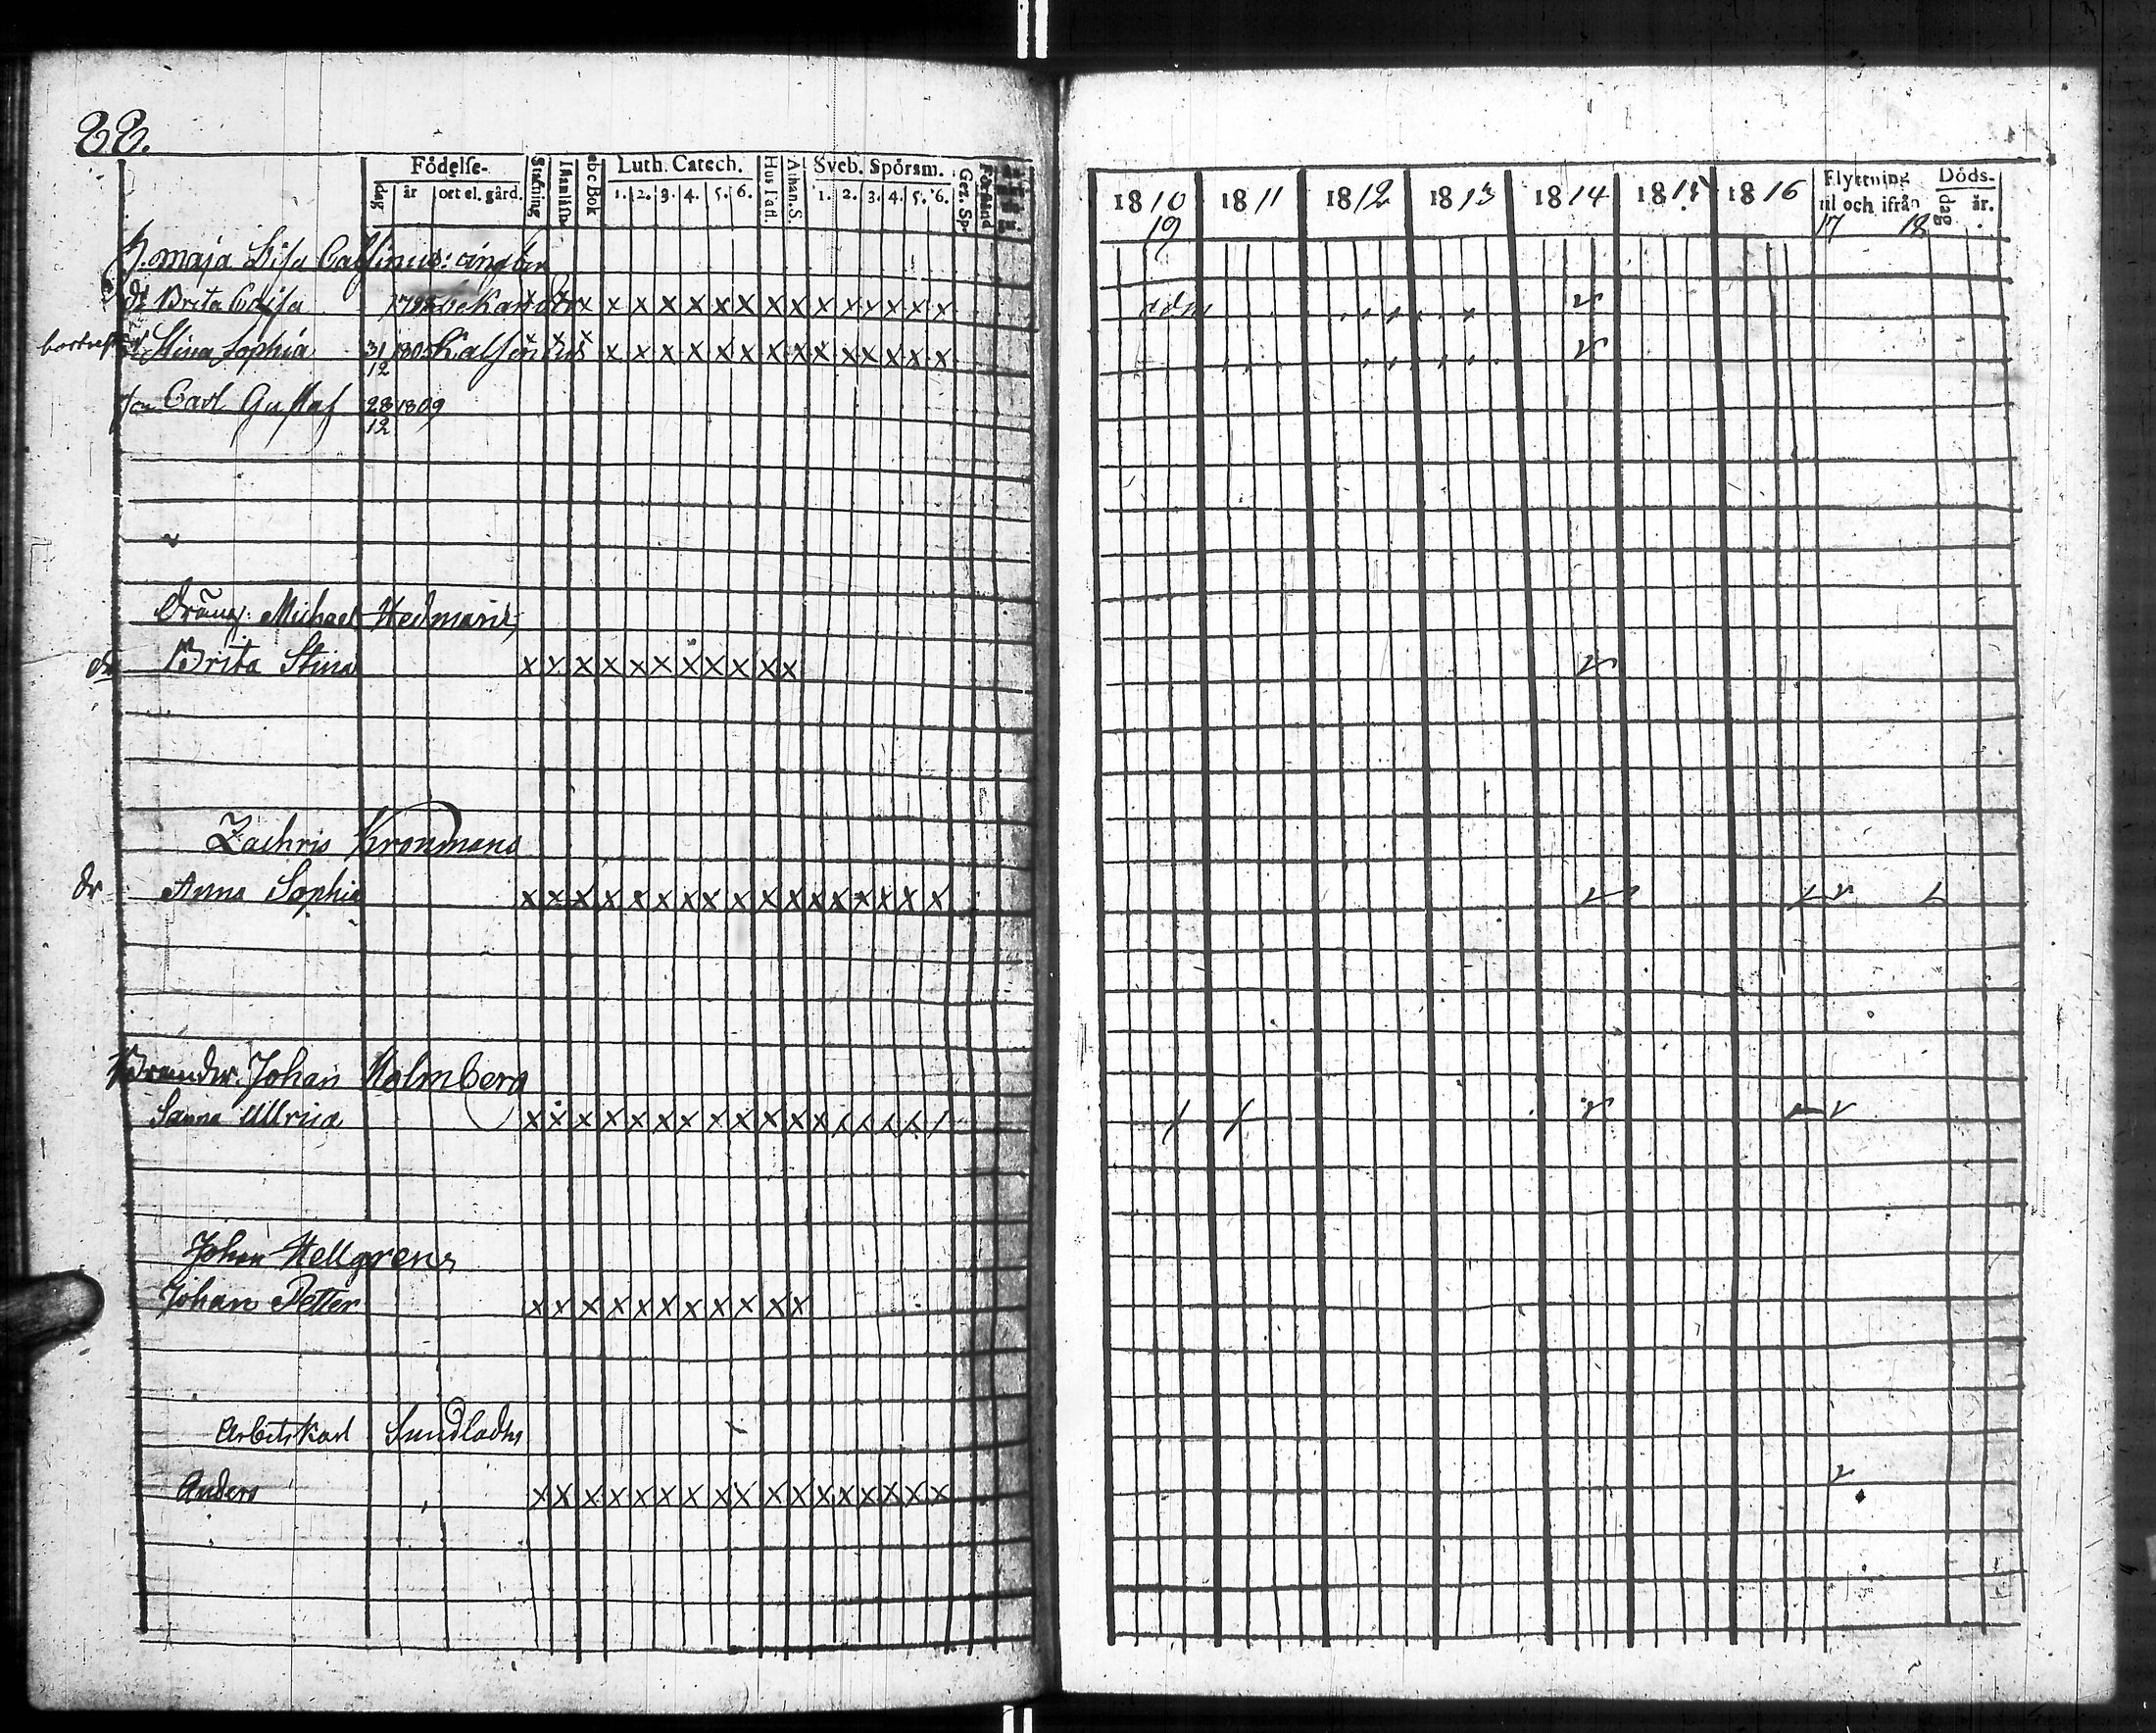 88.
Födelse-
dag år ort el. gård.
Stafning
abc Bok
Luth. Catech.
1. 2. 3. 4. 5. 6.
Hus Tafl.
Athan. S.
Sveb. Spörsm.
1. 2. 3. 4. 5. 6.
Gez. Sp.
Förstånd
1810 1811 1812 1813 1814 1815 1816
Flyttning
til och ifrån
Döds-
dag år.
19 17 18
H. Maja Lisa
dr Brita Caisa x x x x x x x x x x x x x x x x x
v
Stina Sophia 31 1805 x x x x x x x x x x x x x x x x x
12
v
son Carl Gustaf 28 1809
12
Dräng. Michael Hedmans
dr Brita Stina x x x x x x x x x x x
v
Zachris Kronmans
dr Anna Sophia x x x x x x x x x x x x x x x x x
Johan Holmberg
Sanna Ullrica x x x x x x x x x x x x
Johan Hellgrens
Johan Petter x x x x x x x x x x x
Arbetskarl Sundbladhs
Anders x x x x x x x x x x x x x x x x x